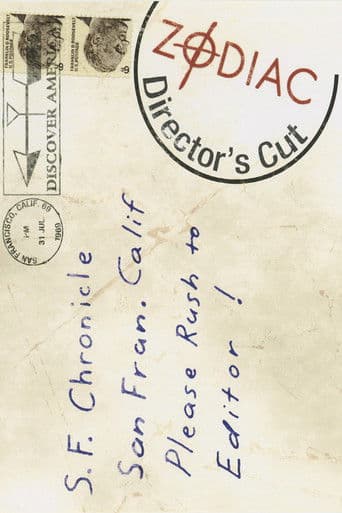 ZODIAC
Director's Cut
FRANKLIN D. ROOSEVELT
U.S. POSTAGE
6¢
FRANKLIN D. ROOSEVELT
U.S. POSTAGE
6¢
DISCOVER AMERICA
SAN FRANCISCO, CALIF. 69
PM
31 JUL
1969
S.F. Chronicle
San Fran. Calif
Please Rush to
Editor!